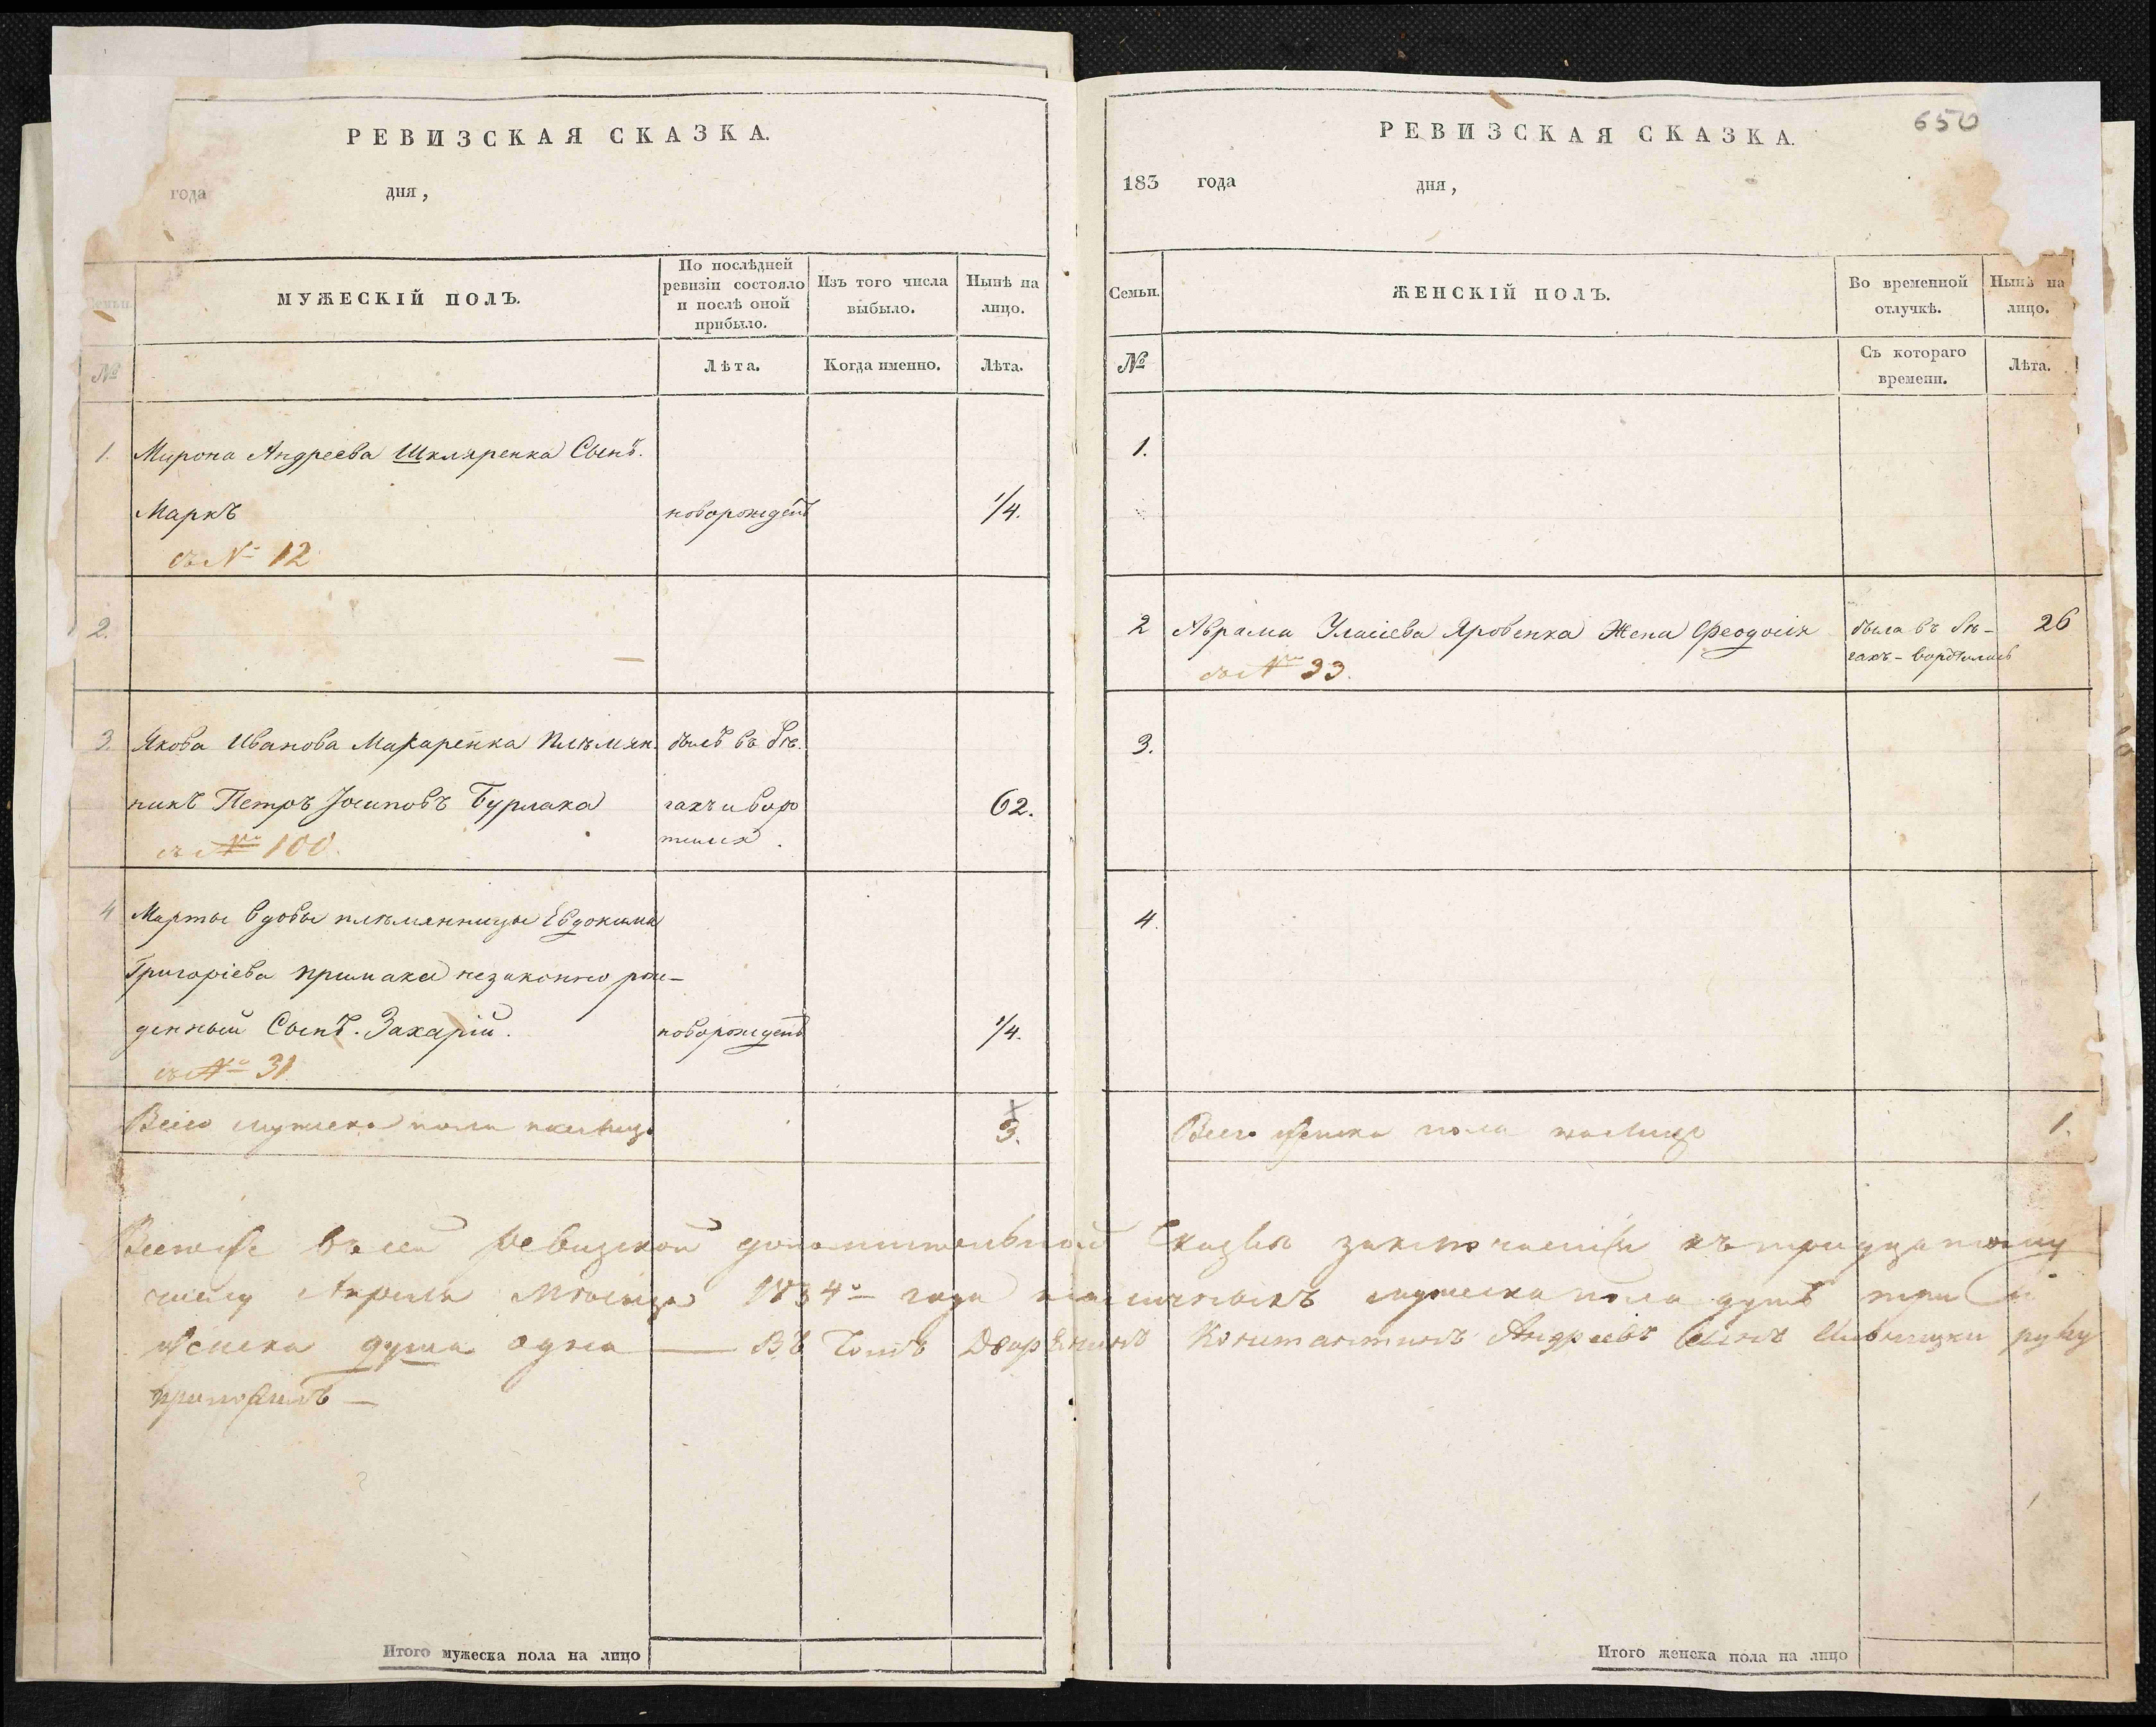 РЕВИЗСКАЯ СКАЗКА.
года дня,
Семьи.
МУЖЕСКІЙ ПОЛЪ.
По послѣдней
ревизіи состояло
и послѣ оной
прибыло.
Изъ того числа
выбыло.
Нынѣ на
лицо.
№
Лѣта.
Когда именно.
Лѣта.
1. Мирона Андреева Шкляренка Сынъ.
Маркъ новорожденъ 1/4.
съ № 12
2.
3. Якова Иванова Макаренка Племян. былъ въ бѣ.
никъ Петръ Іосиповъ Бурлака гахъ и воро 62.
съ № 100. тился.
4 Марты вдовы племянницы Евдокима
Григоріева Примака незаконно рож-
денный Сынъ. Захарій. новорожденъ 1/4.
съ № 31
Всего мужеска пола налицо 3.
Итого мужеска пола на лицо
650
РЕВИЗСКАЯ СКАЗКА.
183 года дня,
Семьи.
ЖЕНСКІЙ ПОЛЪ.
Во временной
отлучкѣ.
Нынѣ на
лицо.
№
Съ котораго
времени.
Лѣта.
1.
2 Аврама Уласіева Яровенка Жена Феодосія была въ бѣ- 26
съ № 33. гахъ - воротилась
3.
4.
Всего женска пола налицо 1.
Всего въ сей Ревизской дополнительной Сказкѣ заключается къ тридцатому
числу Апреля Мѣсяца 1834го года наличныхъ мужеска пола душъ три и
женска душа одна — Въ Томъ Дворянинъ Константинъ Андреевъ Сынъ руку
приложилъ —
Итого женска пола на лицо